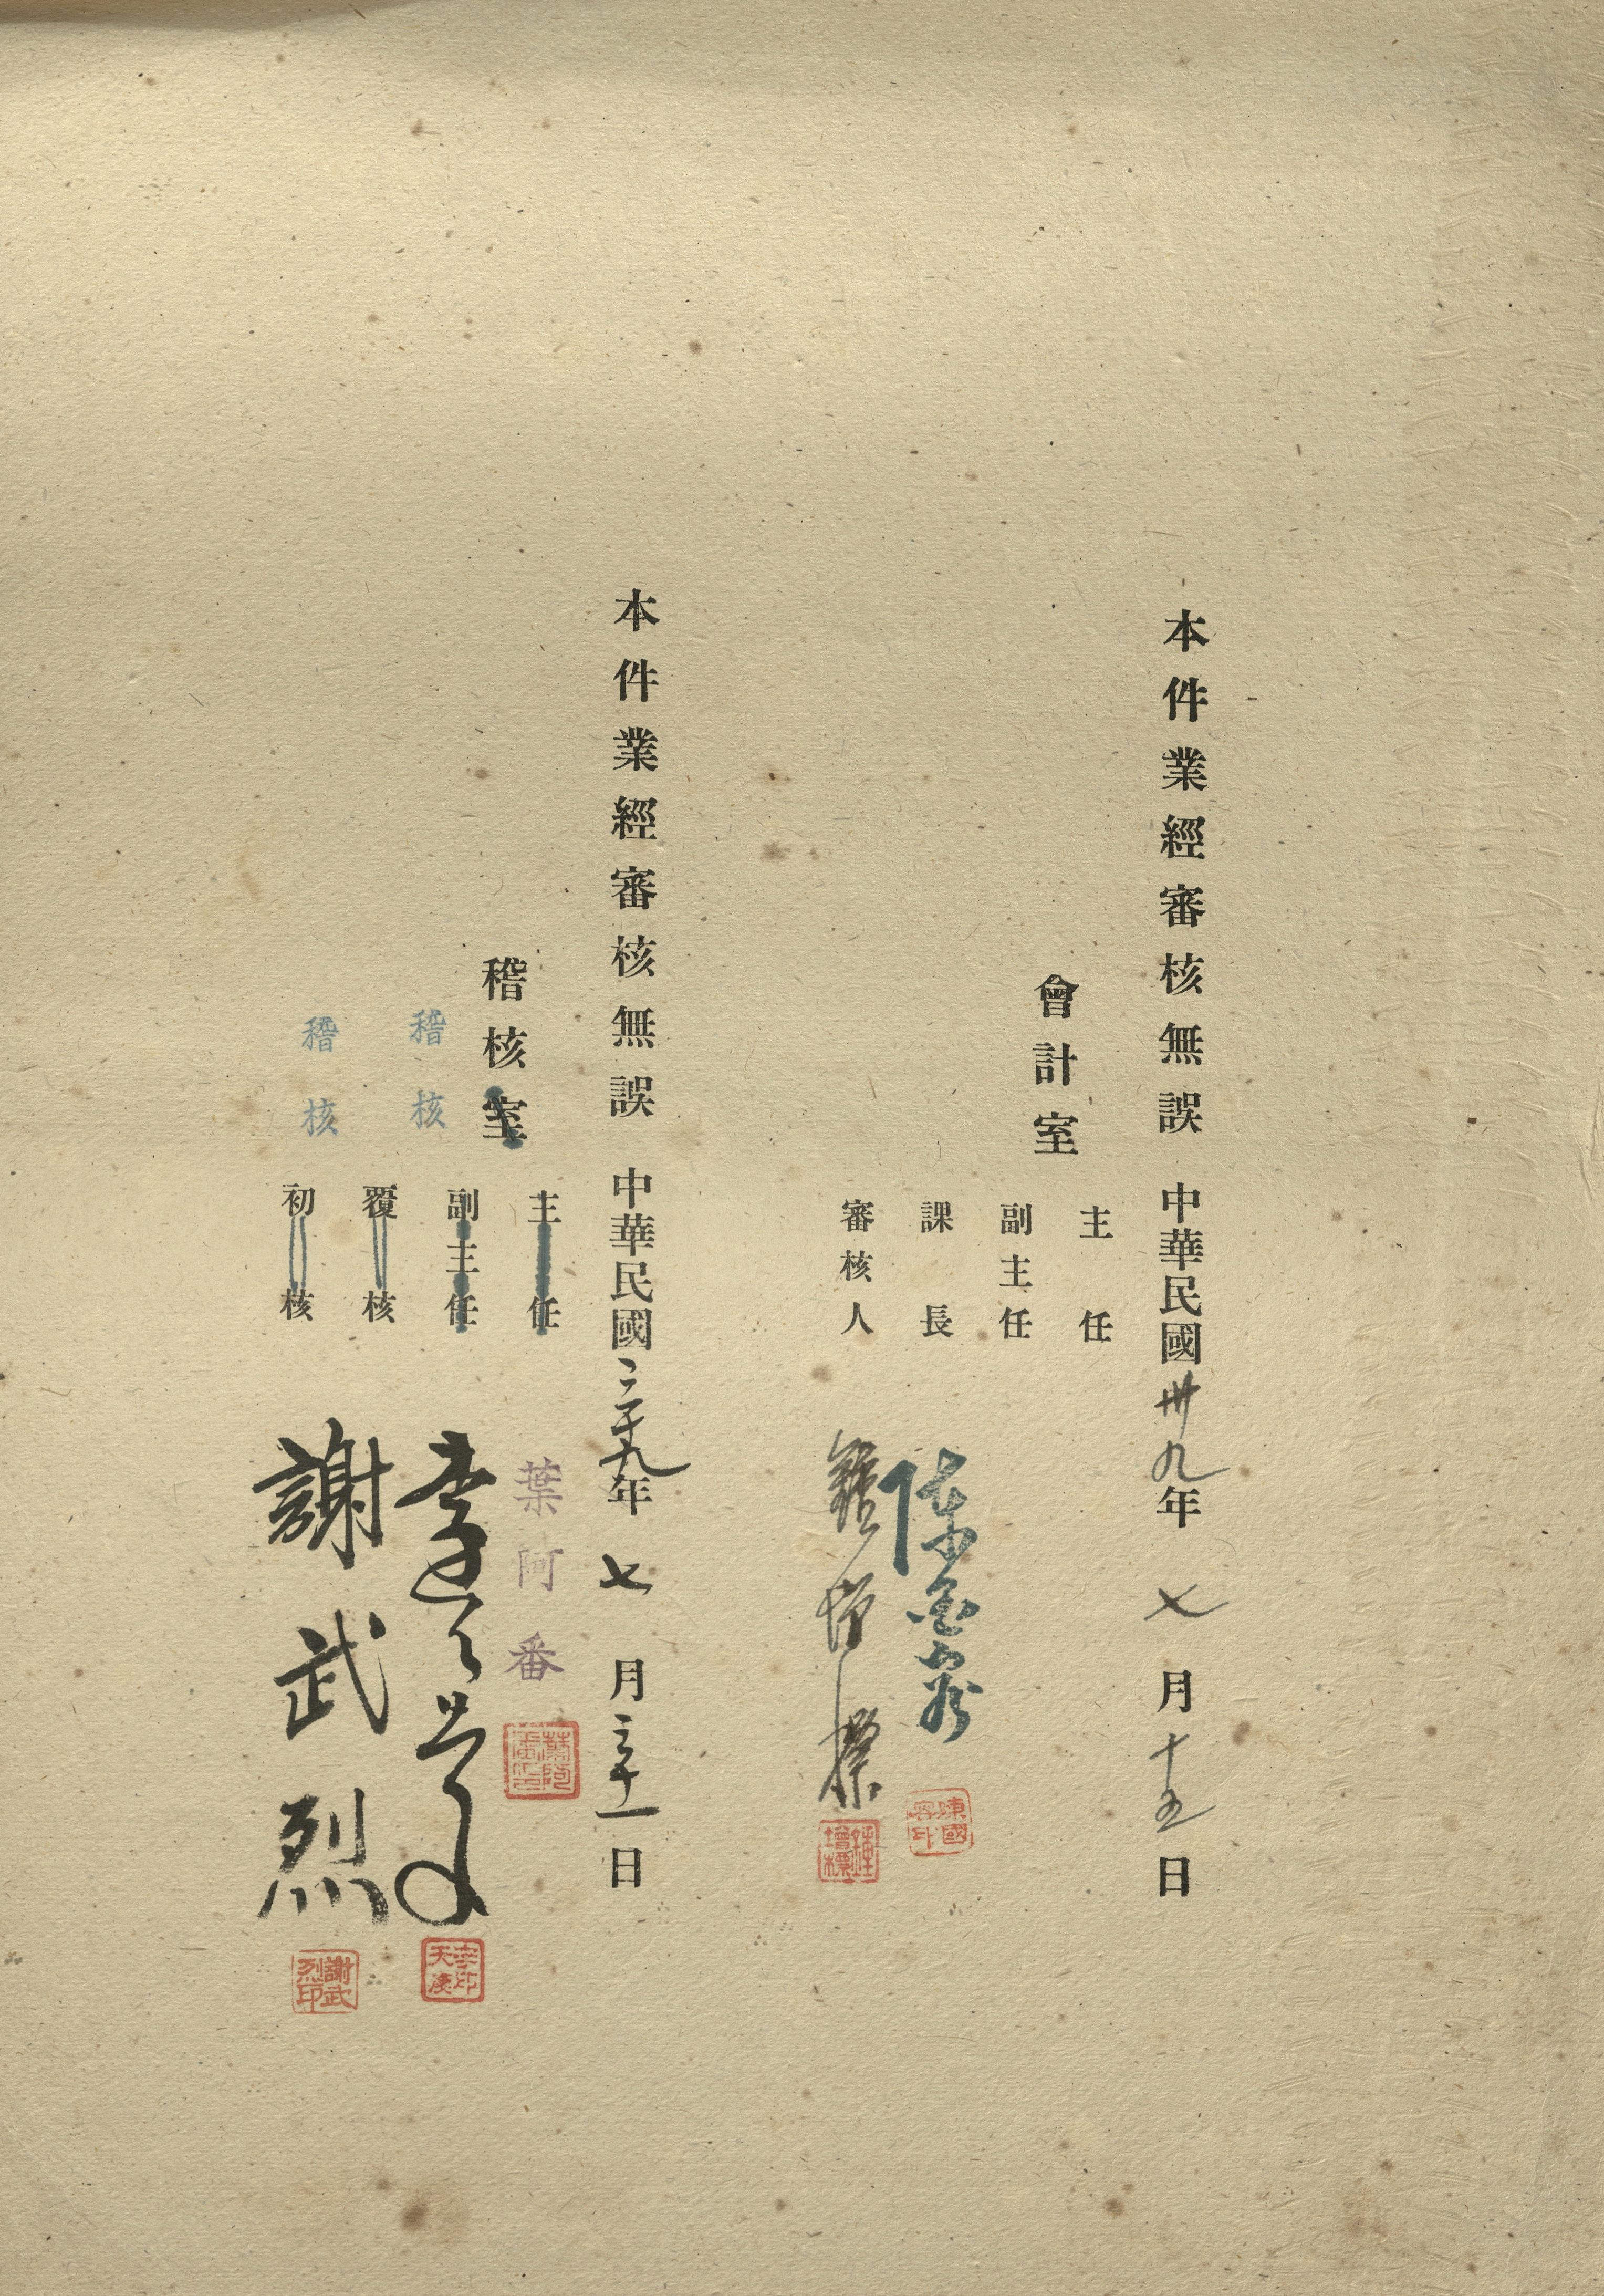 本件業經審核無誤 中華民國卅九年 七 月十五日
會計室
主任
副主任
課長 陳
審核人 鍾增標
鍾增標
本件業經審核無誤 中華民國三十九年 七 月三十一日
稽核室
主任 葉阿番
副主任
稽核 覆核 李天
稽核 初核 謝武烈
謝武烈印